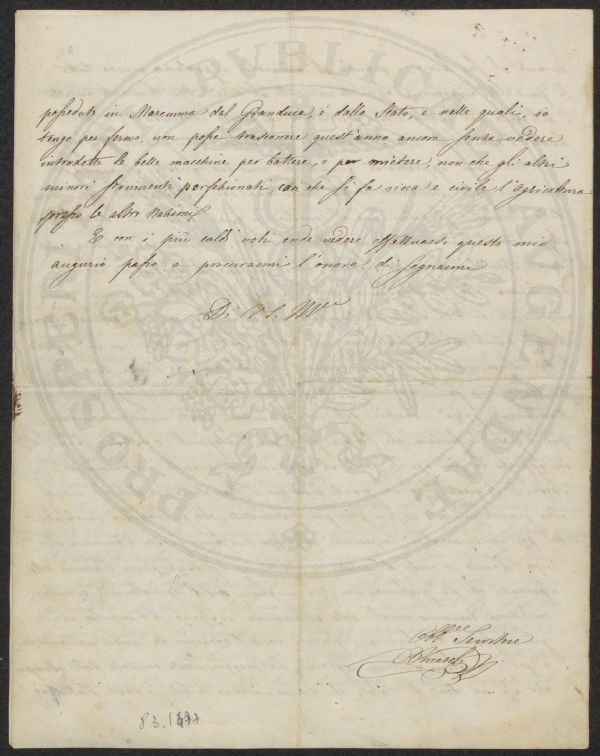 possedute in Maremma dal Granduca, e dallo Stato, e nelle quali, io
tengo per fermo, non possa trascorrere quest'anno ancora senza vedere
introdotte le belle macchine per battere, e per mietere, non che gli altri
minori strumenti perfezionati, con che si fa ricca e civile l'agricoltura
presso le altre Nazioni.
E con i più caldi voti onde vedere effettuarsi questo mio
augurio passo a procurarmi l'onore di segnarmi
Di V. S. Ill.
Servitore
83.1477
PROSPERITATI PUBLICAE AUGENDAE